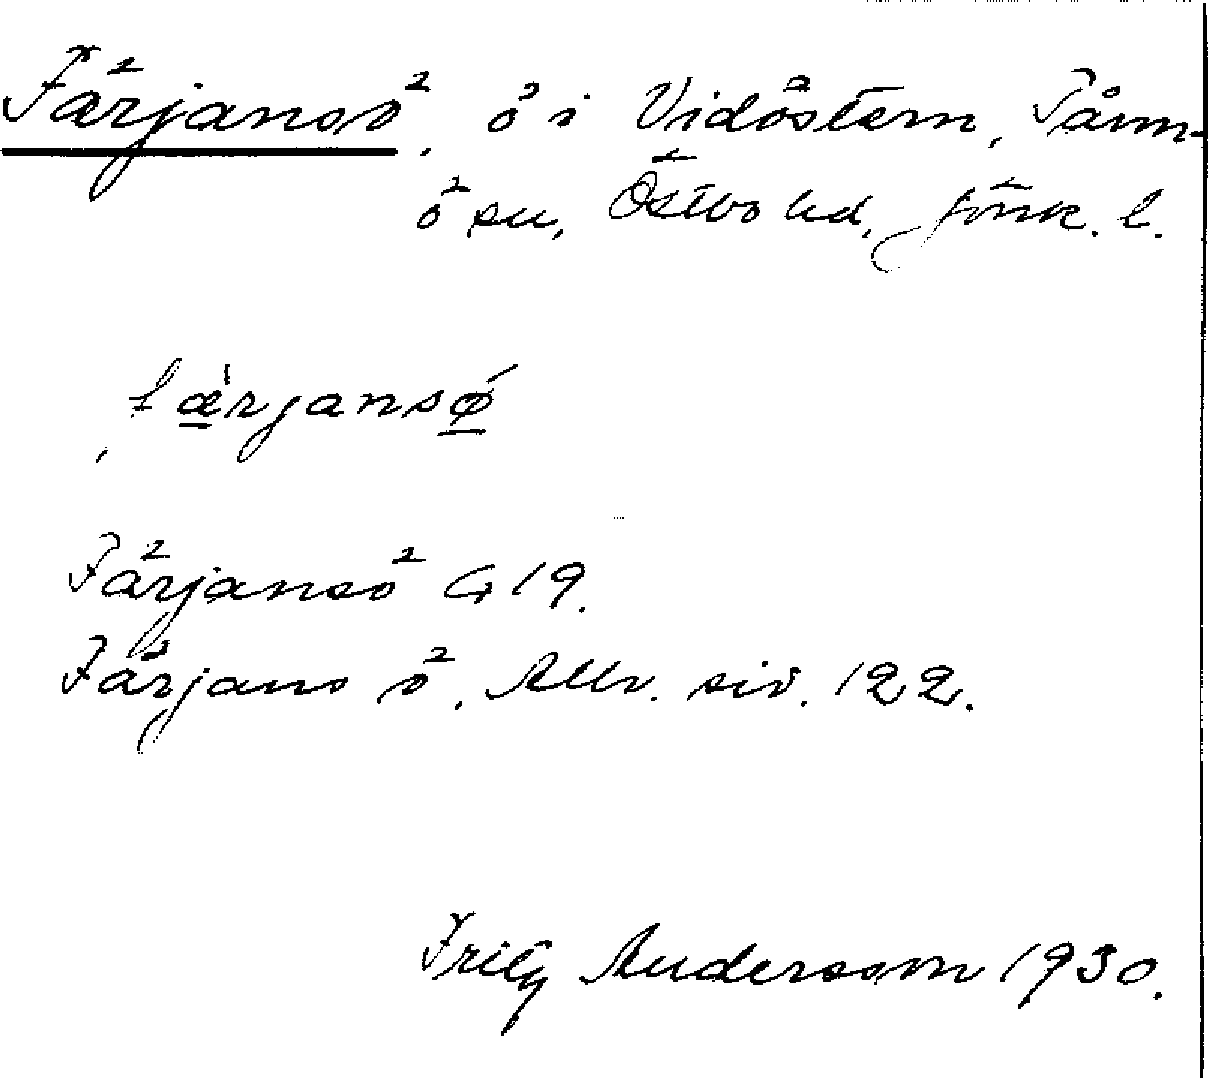 Färjansö, ö i Vidöstern, Tånn-
ö sn, Östbo hd, Jönk. l.
fæ̲rjansǿ̲
Färjansö G 19.
Färjans ö. Allv. siv. 122.
Fritz Andersson 1930.